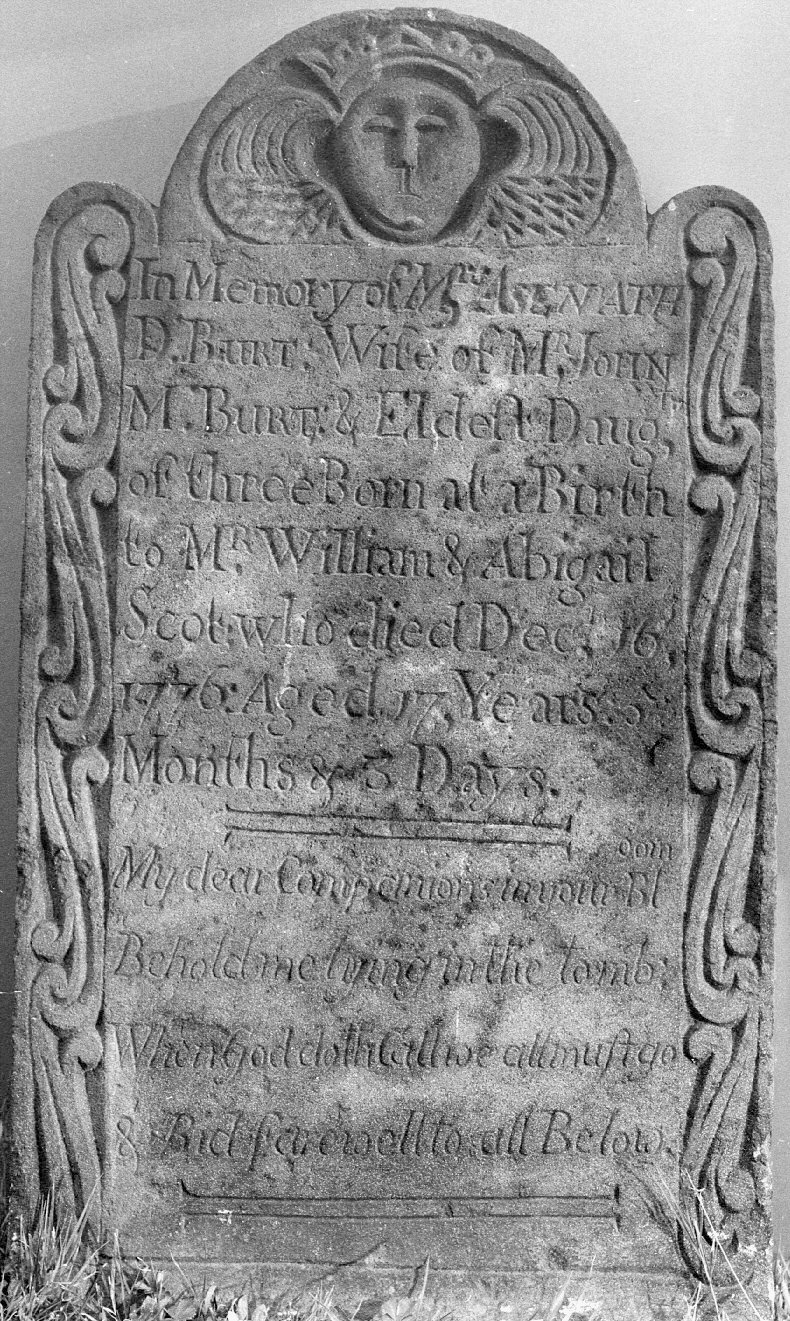 In Memory of Mʳˢ ASENATH
D. BURT: Wife of Mᴿ. JOHN
M. BURT: & Eldeſt Daugᵗʳ,
of three Born at a Birth
to Mᴿ. William & Abigail
Scot: who died Decᵗ. 16,
1776. Aged 17 Years. 3
Months & 3 Days.
My dear Companions in your Blᵒᵒᵐ
Behold me lying in the tomb:
When God doth Call we all muſt go
& Bid farewell to all Below.